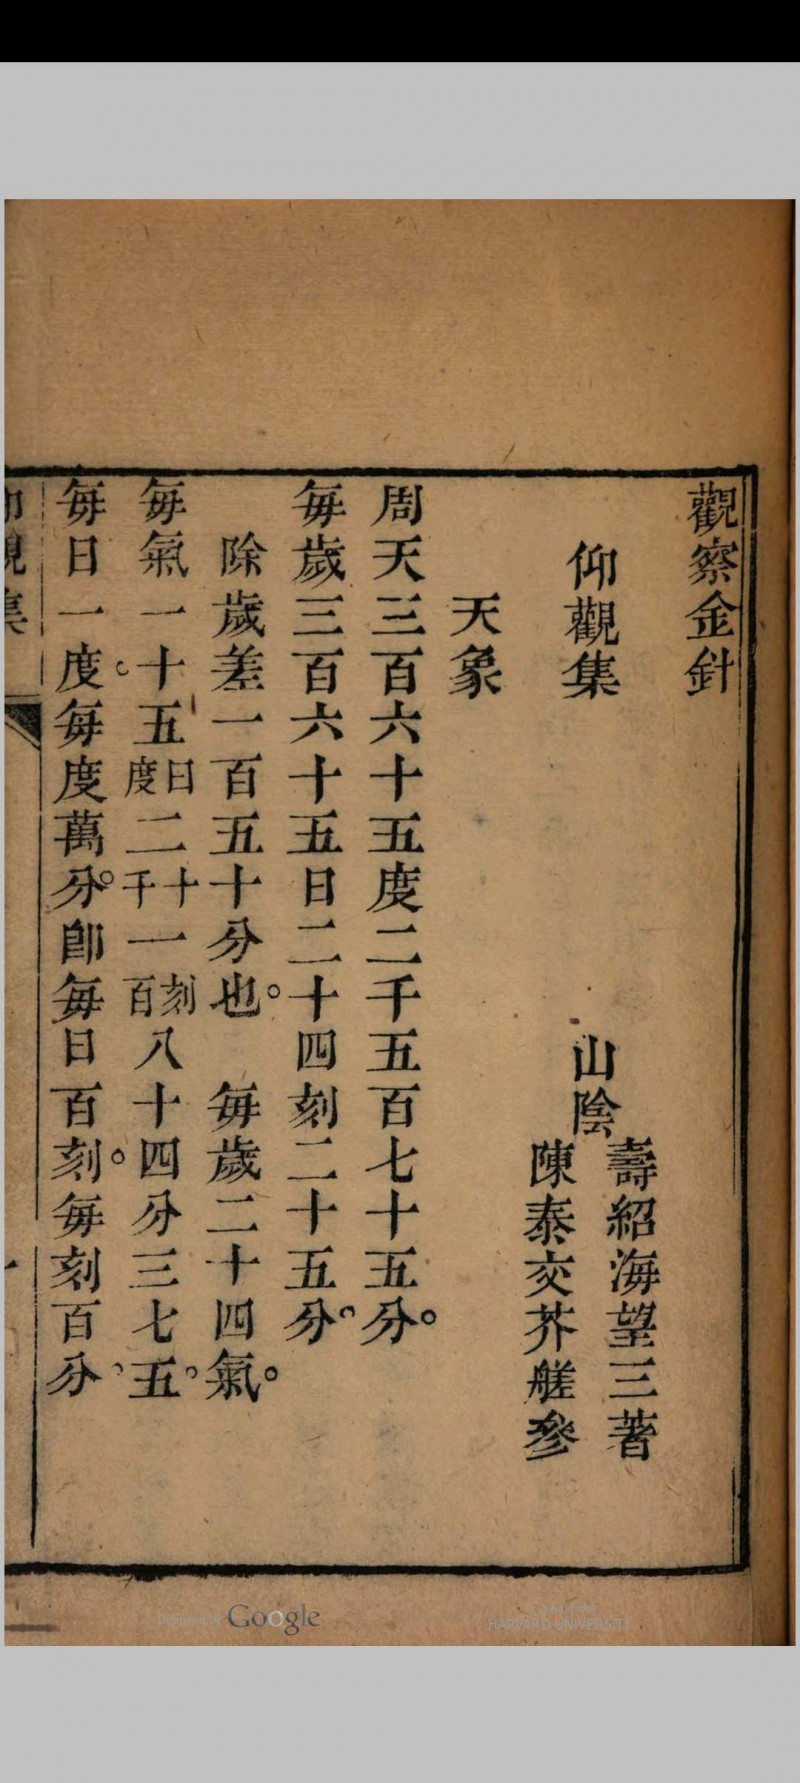 觀察金針
仰觀集
山陰
壽紹海望三著
陳泰交芥艖參
天象
周天三百六十五度二千五百七十五分。
每歲三百六十五日二十四刻二十五分。
除歲差一百五十分也。 每歲二十四氣。
每氣一十五日度二十千一刻百八十四分三七五。
每日一度。每度萬分。卽每日百刻。每刻百分、
仰觀集
Google
HARVARD UNIVERSITY